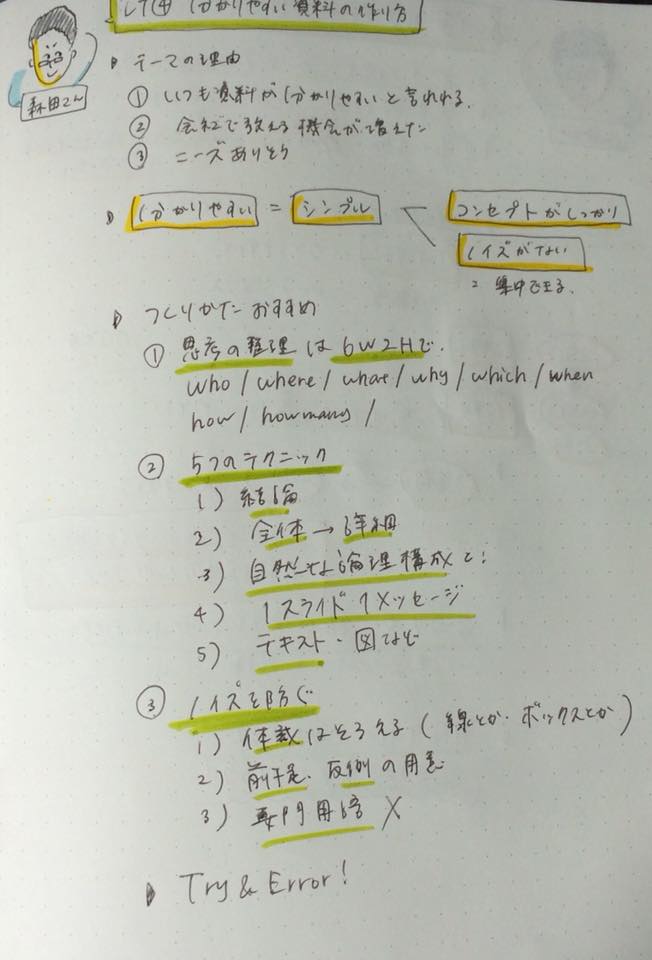 LT④ 分かりやすい資料の作り方
森田さん
テーマの理由
① いつも資料が分かりやすいと言われる.
② 会社で教える機会が増えた
③ ニーズありそう
分かりやすい = シンプル
コンセプトがしっかり
ノイズがない
集中できる.
つくりかた おすすめ
① 思考の整理は 6W2Hで.
who / where / what / why / which / when
how / how many /
② 5つのテクニック
1) 結論
2) 全体→詳細
3) 自然な論理構成と:
4) 1スライド・1メッセージ
5) テキスト・図など
③ ノイズを防ぐ
1) 体裁はそろえる (線とか・ボックスとか)
2) 前提、反例の用意
3) 専門用語 ×
Try & Error!